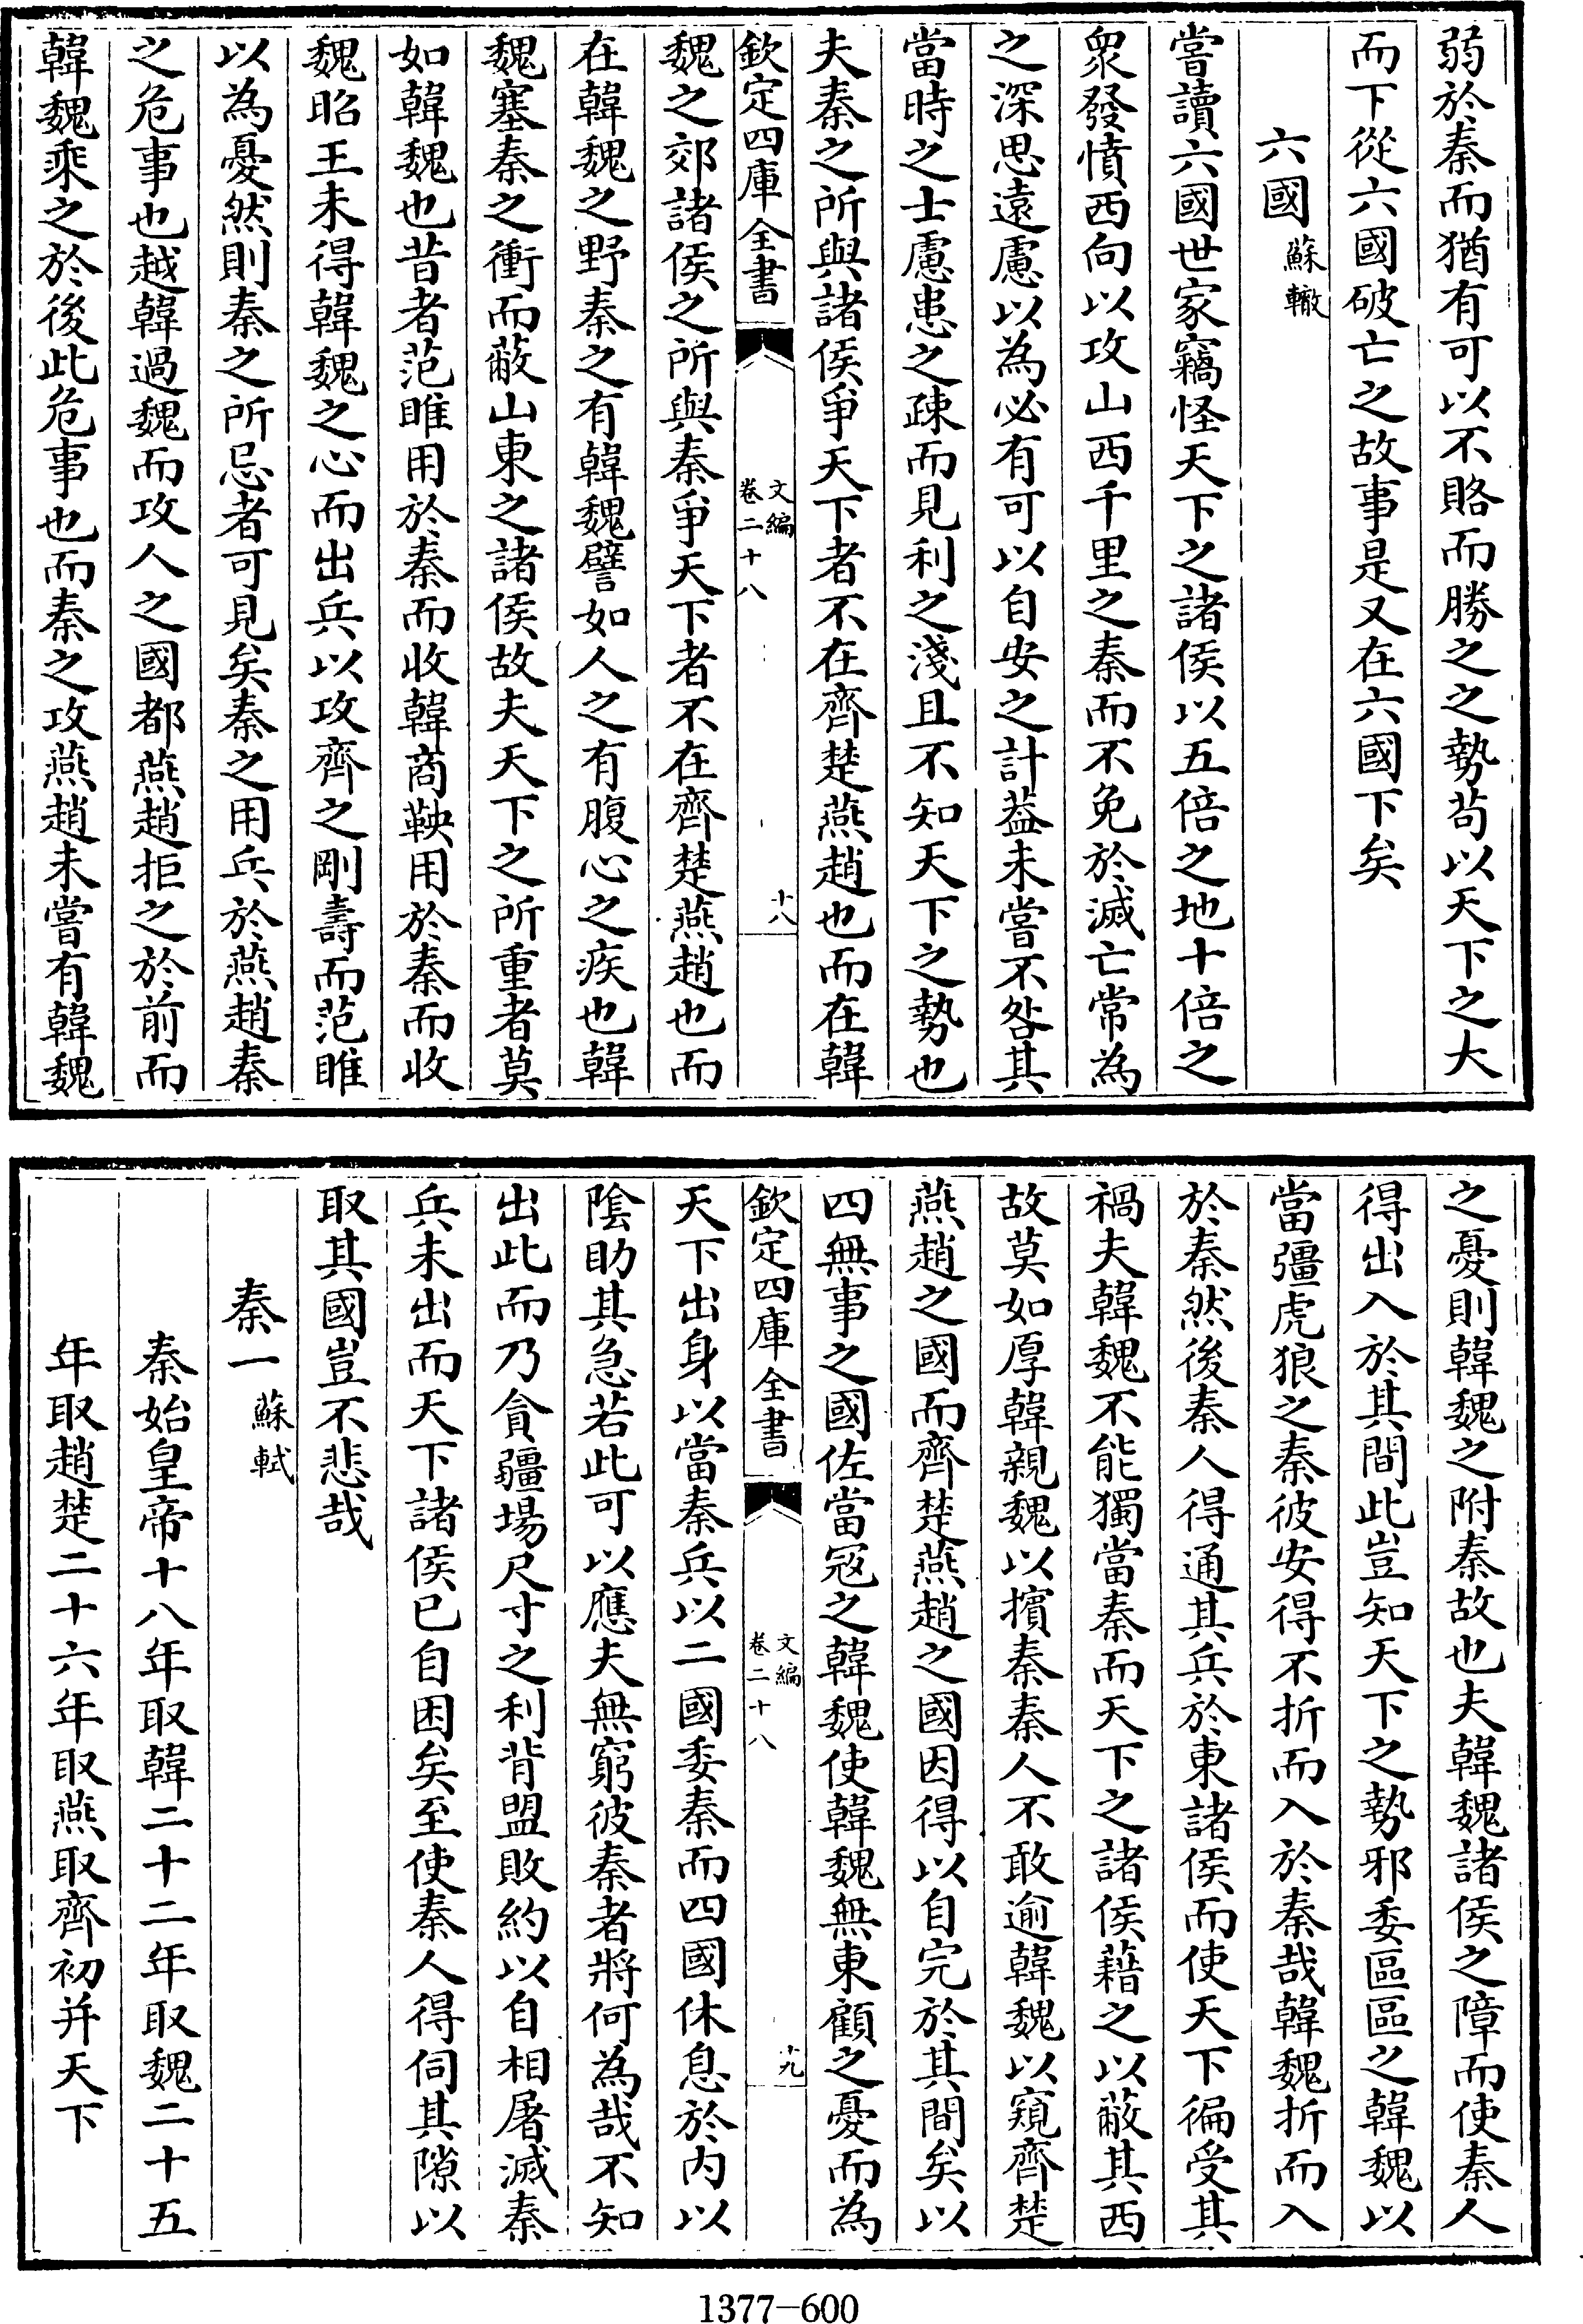 弱於秦而猶有可以不賂而勝之之勢苟以天下之大
而下從六國破亡之故事是又在六國下矣
六國 蘇轍
嘗讀六國世家竊怪天下之諸侯以五倍之地十倍之
衆發憤西向以攻山西千里之秦而不免於滅亡常為
之深思遠慮以為必有可以自安之計葢未嘗不咎其
當時之士慮患之疎而見利之淺且不知天下之勢也
夫秦之所與諸侯爭天下者不在齊楚燕趙也而在韓
欽定四庫全書
文編
卷二十八
十八
魏之郊諸侯之所與秦爭天下者不在齊楚燕趙也而
在韓魏之野秦之有韓魏譬如人之有腹心之疾也韓
魏塞秦之衝而蔽山東之諸侯故夫天下之所重者莫
如韓魏也昔者范雎用於秦而收韓商鞅用於秦而收
魏昭王未得韓魏之心而出兵以攻齊之剛壽而范雎
以為憂然則秦之所忌者可見矣秦之用兵於燕趙秦
之危事也越韓過魏而攻人之國都燕趙拒之於前而
韓魏乘之於後此危事也而秦之攻燕趙未嘗有韓魏
之憂則韓魏之附秦故也夫韓魏諸侯之障而使秦人
得出入於其間此豈知天下之勢邪委區區之韓魏以
當彊虎狼之秦彼安得不折而入於秦哉韓魏折而入
於秦然後秦人得通其兵於東諸侯而使天下徧受其
禍夫韓魏不能獨當秦而天下之諸侯藉之以蔽其西
故莫如厚韓親魏以擯秦秦人不敢逾韓魏以窺齊楚
燕趙之國而齊楚燕趙之國因得以自完於其間矣以
四無事之國佐當寇之韓魏使韓魏無東顧之憂而為
欽定四庫全書
文編
卷二十八
十九
天下出身以當秦兵以二國委秦而四國休息於内以
陰助其急若此可以應夫無窮彼秦者將何為哉不知
出此而乃貪疆場尺寸之利背盟敗約以自相屠滅秦
兵未出而天下諸侯已自困矣至使秦人得伺其隙以
取其國豈不悲哉
秦一 蘇軾
秦始皇帝十八年取韓二十二年取魏二十五
年取趙楚二十六年取燕取齊初并天下
1377-600